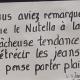 ous aviez remarqué
ue le Nutella à la
âcheuse tendance
étrécir les jeans
pense porter plai